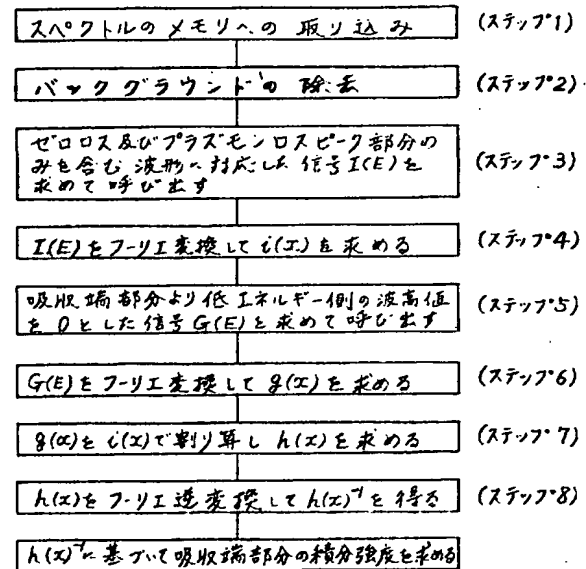 スペクトルのメモリへの取り込み (ステップ1)
バックグラウンドの除去 (ステップ2)
ゼロロス及びプラズモンロスピーク部分の
みを含む波形に対応した信号I(E)を (ステップ3)
求めて呼び出す
I(E)をフーリエ変換してi(x)を求める (ステップ4)
吸収端部分より低エネルギー側の波高値 (ステップ5)
を0とした信号G(E)を求めて呼び出す
G(E)をフーリエ変換してg(x)を求める (ステップ6)
g(x)をi(x)で割り算しh(x)を求める (ステップ7)
h(x)をフーリエ逆変換してh(x)⁻¹を得る (ステップ8)
h(x)⁻¹に基づいて吸収端部分の積分強度を求める